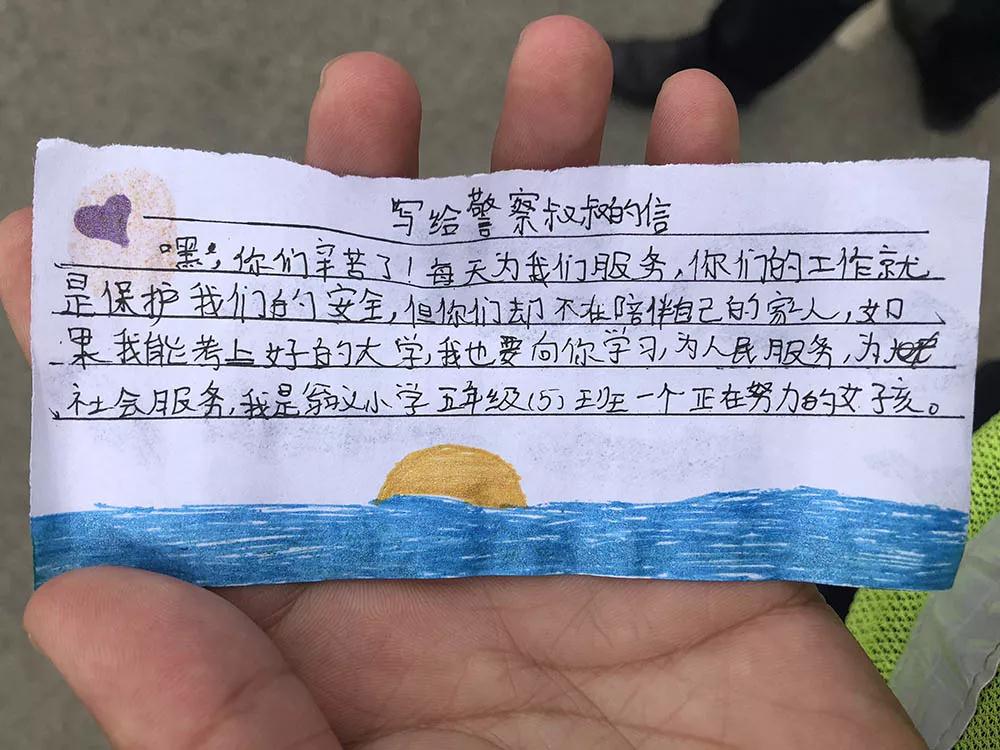 写给警察叔叔的信
嘿，你们辛苦了！每天为我们服务，你们的工作就
是保护我们的安全，但你们却不在陪伴自己的家人，如
果我能考上好的大学，我也要向你学习，为人民服务，为
社会服务，我是翁议小学五年级（5）班一个正在努力的女孩。